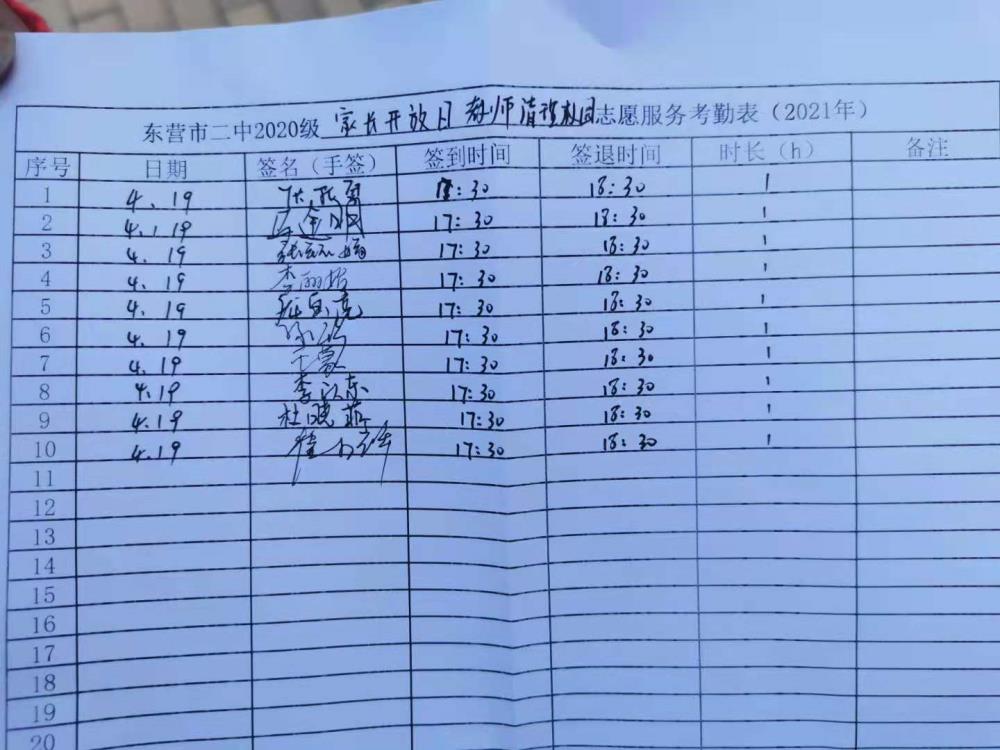 东营市二中2020级 家长开放日 教师清理校园志愿服务考勤表（2021年）
序号 日期 签名（手签） 签到时间 签退时间 时长（h） 备注
1 4.19 :30 18:30 1
2 4.19 17:30 18:30 1
3 4.19 17:30 18:30 1
4 4.19 17:30 18:30 1
5 4.19 17:30 18:30 1
6 4.19 17:30 18:30 1
7 4.19 17:30 18:30 1
8 4.19 17:30 18:30 1
9 4.19 杜晓菲 17:30 18:30 1
10 4.19 17:30 18:30 1
11
12
13
14
15
16
17
18
19
20